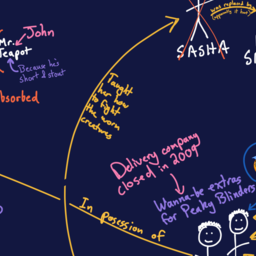 was replaced by
John
Mr.
Teapot
Because he's
short & stout
SASHA
S
absorbed
Taught
her how
to fight
the worm
creatures
Delivery company
closed in 2009
Wanna-be extras
for Peaky Blinders
In posession of